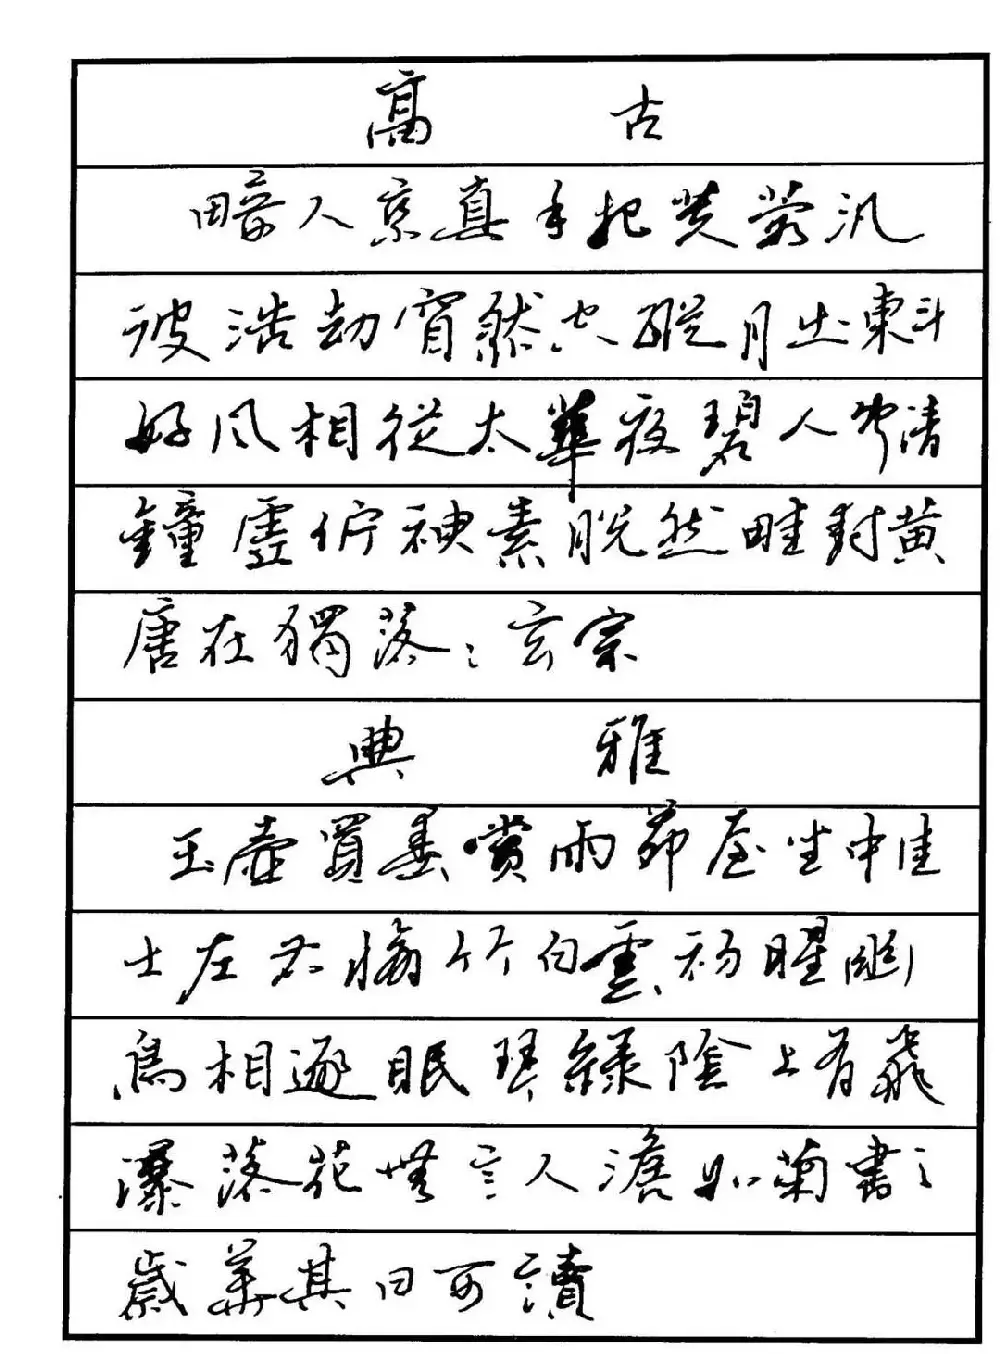 高古
畸人乘真手把芙蓉汎
彼浩劫窅然空蹤月出東斗
好風相從太華夜碧人聞清
鐘虛佇神素脫然畦封黃
唐在獨落〻玄宗
典雅
玉壺買春賞雨茆屋坐中佳
士左右脩竹白雲初晴幽
鳥相逐眠琴綠陰上有飛
瀑落花無言人澹如菊書之
歲華其曰可讀